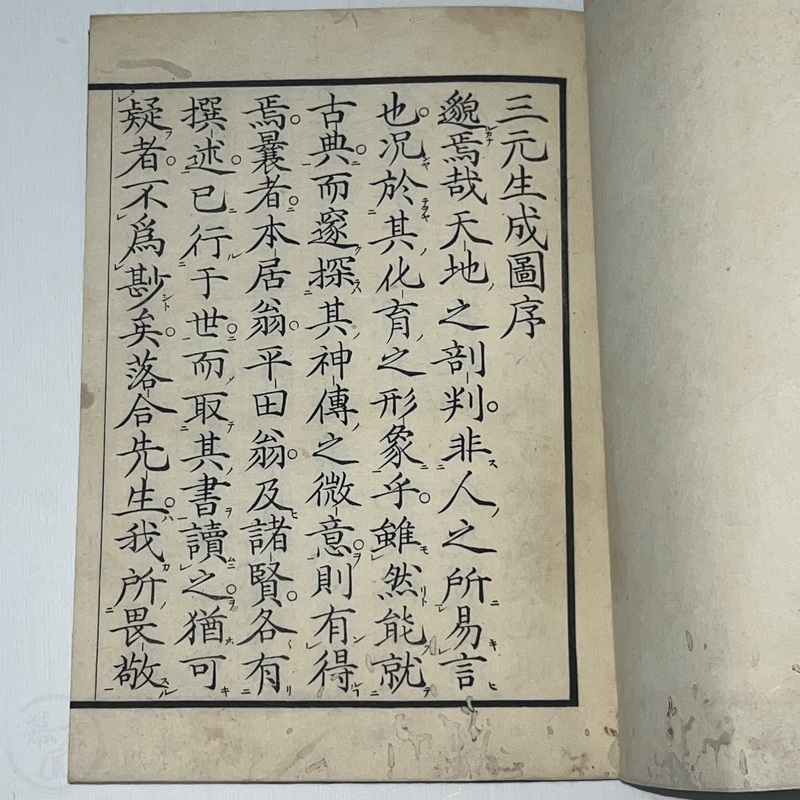 三元生成圖序
邈焉哉天地之剖判非人之所易言
也況於其化育之形象乎雖然能就
古典而邃探其神傳之微意則有得
焉曩者本居翁平田翁及諸賢各有
撰述已行于世而取其書讀之猶可
疑者不爲尠矣落合先生我所畏敬